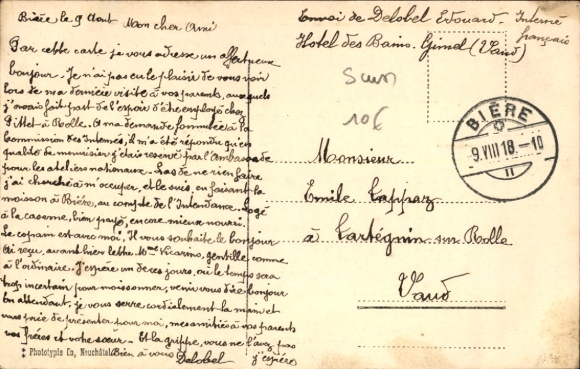 Bière le 9 Aout Mon cher Ami
Par cette carte je vous adresse un affectueux
bonjour. Je n'ai pas eu le plaisir de vous voir
lors de ma dernière visite à vos parents, auxquels
j'avais fait part de l'espoir d'être employé chez
Pittet à Rolle. A ma demande formulée à la
Commission des Internés, il m'a été répondu qu'en
qualité de menuisier j'étais réservé par l'Ambassade
pour les ateliers nationaux. Las de ne rien faire
j'ai cherché à m'occuper, et le suis, en faisant la
moisson à Bière, au compte de l'Intendance. Logé
à la caserne, bien payé, encore mieux nourri.
Le copain est avec moi, Il vous souhaite le bonjour
Ai réçu, avant hier lettre Mme Vicarino, gentille comme
à l'ordinaire. J'espère un de ces jours, où le temps sera
trop incertain pour moissonner, venir vous dire bonjour
En attendant, je vous serre cordialement la main et
vous prie de présenter pour moi, mes amitiés à vos parents
vos frères et votre sœur. Et la grippe, vous ne l'avez pas
j'espère
Bien à vous Delobel
Phototypie Co, Neuchâtel
Envoi de Delobel Edouard - Interné
français
Hotel des Bains. Gimel (Vaud)
10€
BIÈRE
9.VIII 18.-10
11
Monsieur
Emile Cappaz
à Tartégnin sur Rolle
Vaud